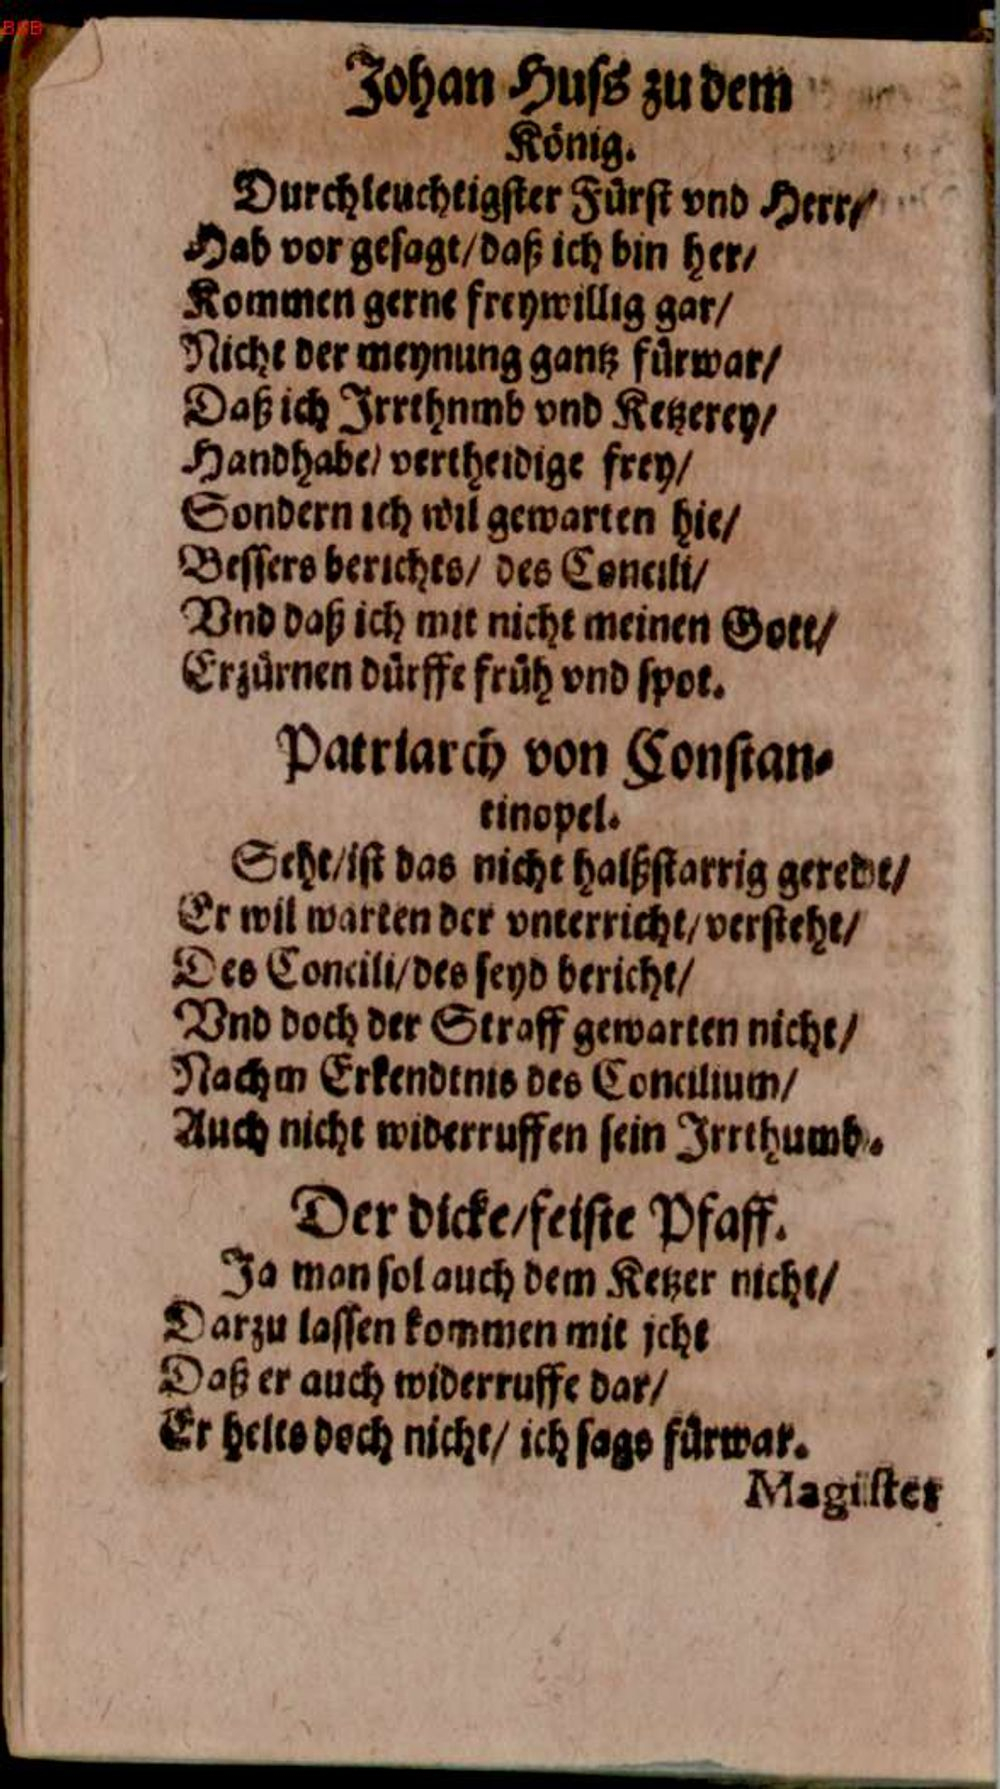 BSB
Johan Huſs zu dem
König.
Durchleuchtigſter Fürſt vnd Herr/
Hab vor geſagt/ daß ich bin her/
Kommen gerne freywillig gar/
Nicht der meynung gantz fürwar/
Daß ich Irrthnmb vnd Ketzerey/
Handhabe/ vertheidige frey/
Sondern ich wil gewarten hie/
Beſſers berichts/ des Concili/
Vnd daß ich mit nicht meinen Gott/
Erzürnen dürffe früh vnd ſpot.
Patriarch von Conſtan-
tinopel.
Seht/ iſt das nicht halßſtarrig geredet/
Er wil warten der vnterricht/ verſteht/
Des Concili/ des ſeyd bericht/
Vnd doch der Straff gewarten nicht/
Nachm Erkendtnis des Concilium/
Auch nicht widerruffen ſein Irrthumb.
Der dicke/ feiſte Pfaff.
Ja man ſol auch dem Ketzer nicht/
Darzu laſſen kommen mit icht
Daß er auch widerruffe dar/
Er helts doch nicht/ ich ſags fürwar.
Magiſter